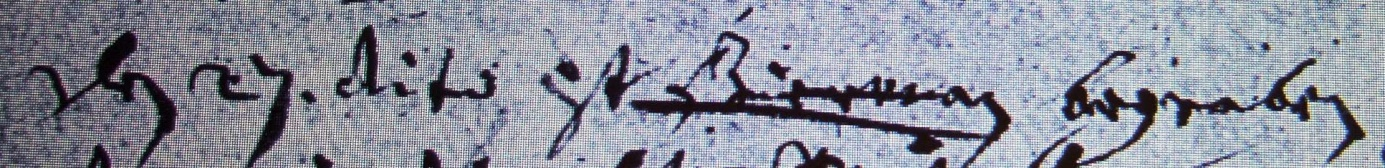 den 27. dito ist Bierman begraben